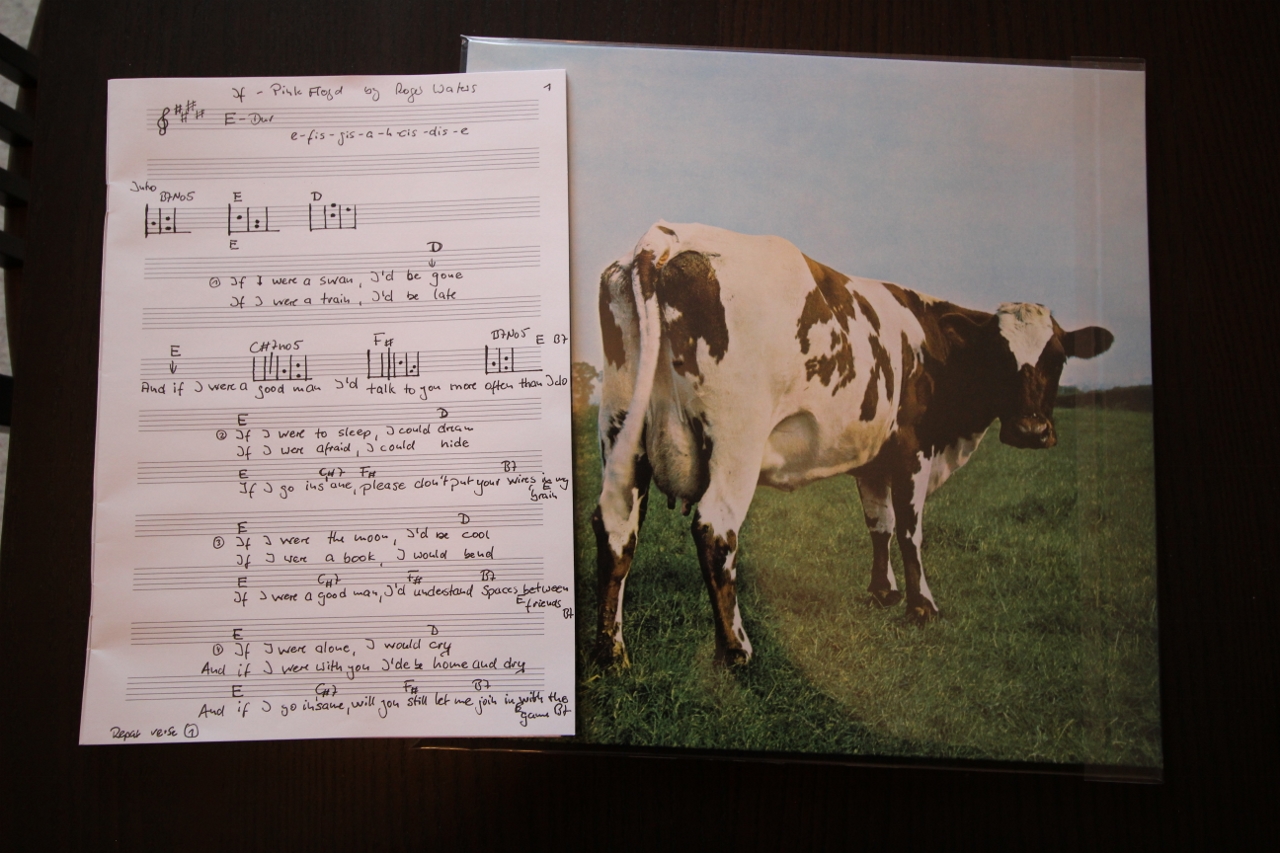 If - Pink Floyd by Roger Waters 1
E-Dur
e-fis-gis-a-h-cis-dis-e
Intro
B7No5 E D
E D
① If I were a swan, I'd be gone
If I were a train, I'd be late
E C#7no5 F# B7No5 E B7
And if I were a good man I'd talk to you more often than I do
E D
② If I were to sleep, I could dream
If I were afraid, I could hide
E C#7 F# B7
If I go insane, please don't put your wires in my
E
brain
E D
③ If I were the moon, I'd be cool
If I were a book, I would bend
E C#7 F# B7
If I were a good man, I'd understand spaces between
E friends B7
E D
④ If I were alone, I would cry
And if I were with you I'de be home and dry
E C#7 F# B7
And if I go insane, will you still let me join in with the
E game B7
Repat verse ①